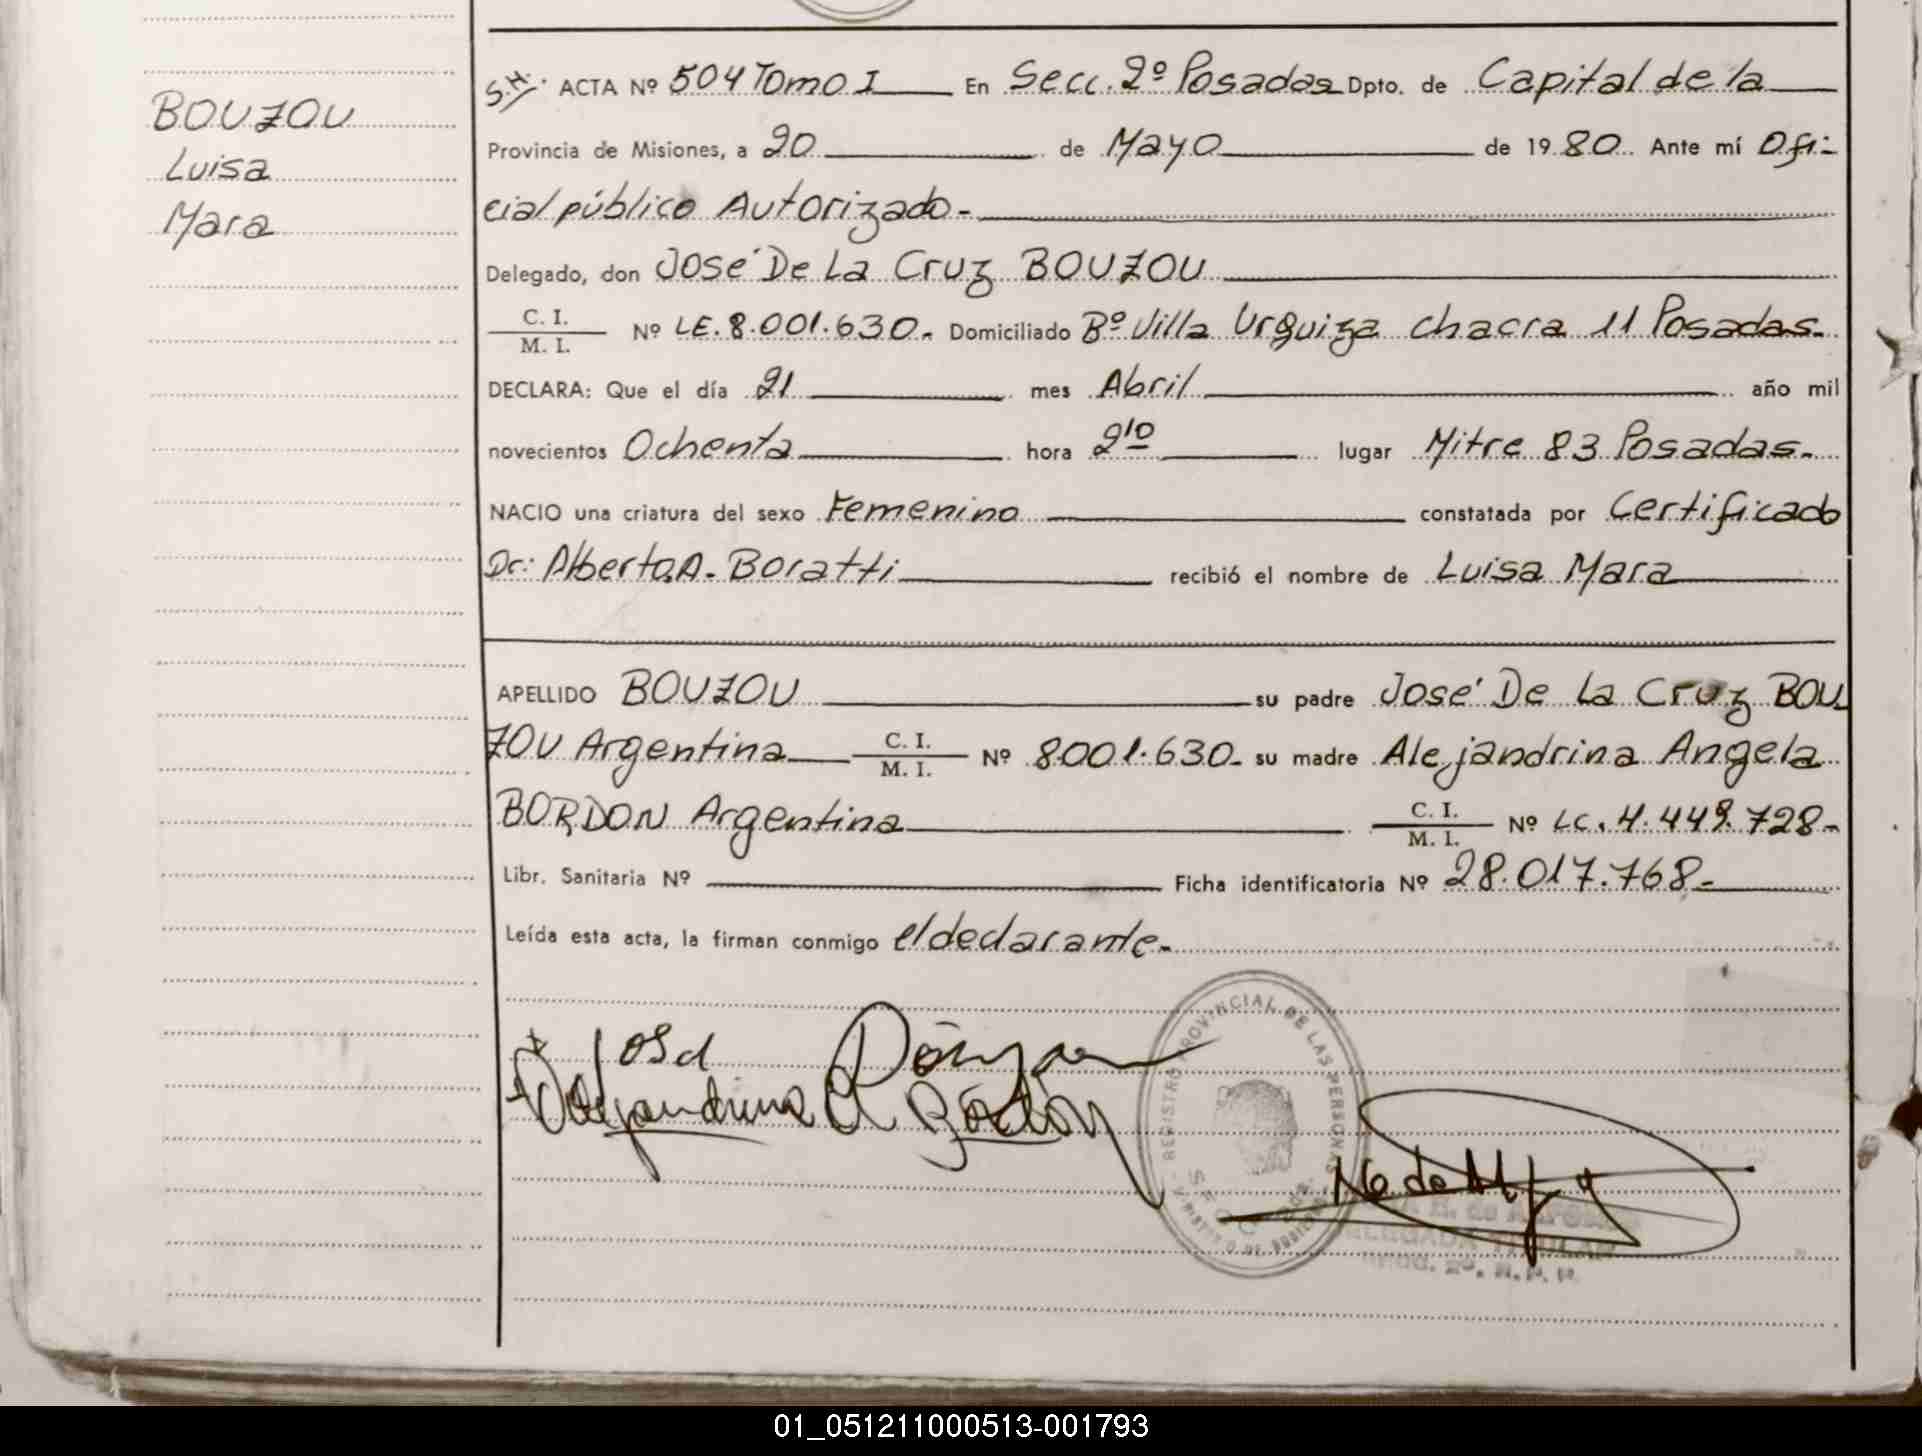 BOUZOU
Luisa
Mara
S.H. ACTA Nº 504 Tomo I En Secc. 2º Posadas Dpto. de Capital de la
Provincia de Misiones, a 20 de Mayo de 1980. Ante mí Ofi-
cial público Autorizado-
Delegado, don José De La Cruz BOUZOU
C. I.
M. I.
Nº LE. 8.001.630. Domiciliado Bº Villa Urquiza chacra 11 Posadas.
DECLARA: Que el día 21 mes Abril año mil
novecientos Ochenta hora 2¹⁰ lugar Mitre 83 Posadas.
NACIO una criatura del sexo Femenino constatada por Certificado
Dr: Alberto A. Boratti recibió el nombre de Luisa Mara
APELLIDO BOUZOU su padre José De La Cruz BOU
ZOU Argentina C. I. M. I. Nº 8001.630- su madre Alejandrina Angela
BORDON Argentina C. I. M. I. Nº LC. 4.449.728-
Libr. Sanitaria Nº Ficha identificatoria Nº 28.017.768-
Leída esta acta, la firman conmigo el declarante.
REGISTRO PROVINCIAL DE LAS PERSONAS
Alejandrina A
01_051211000513-001793